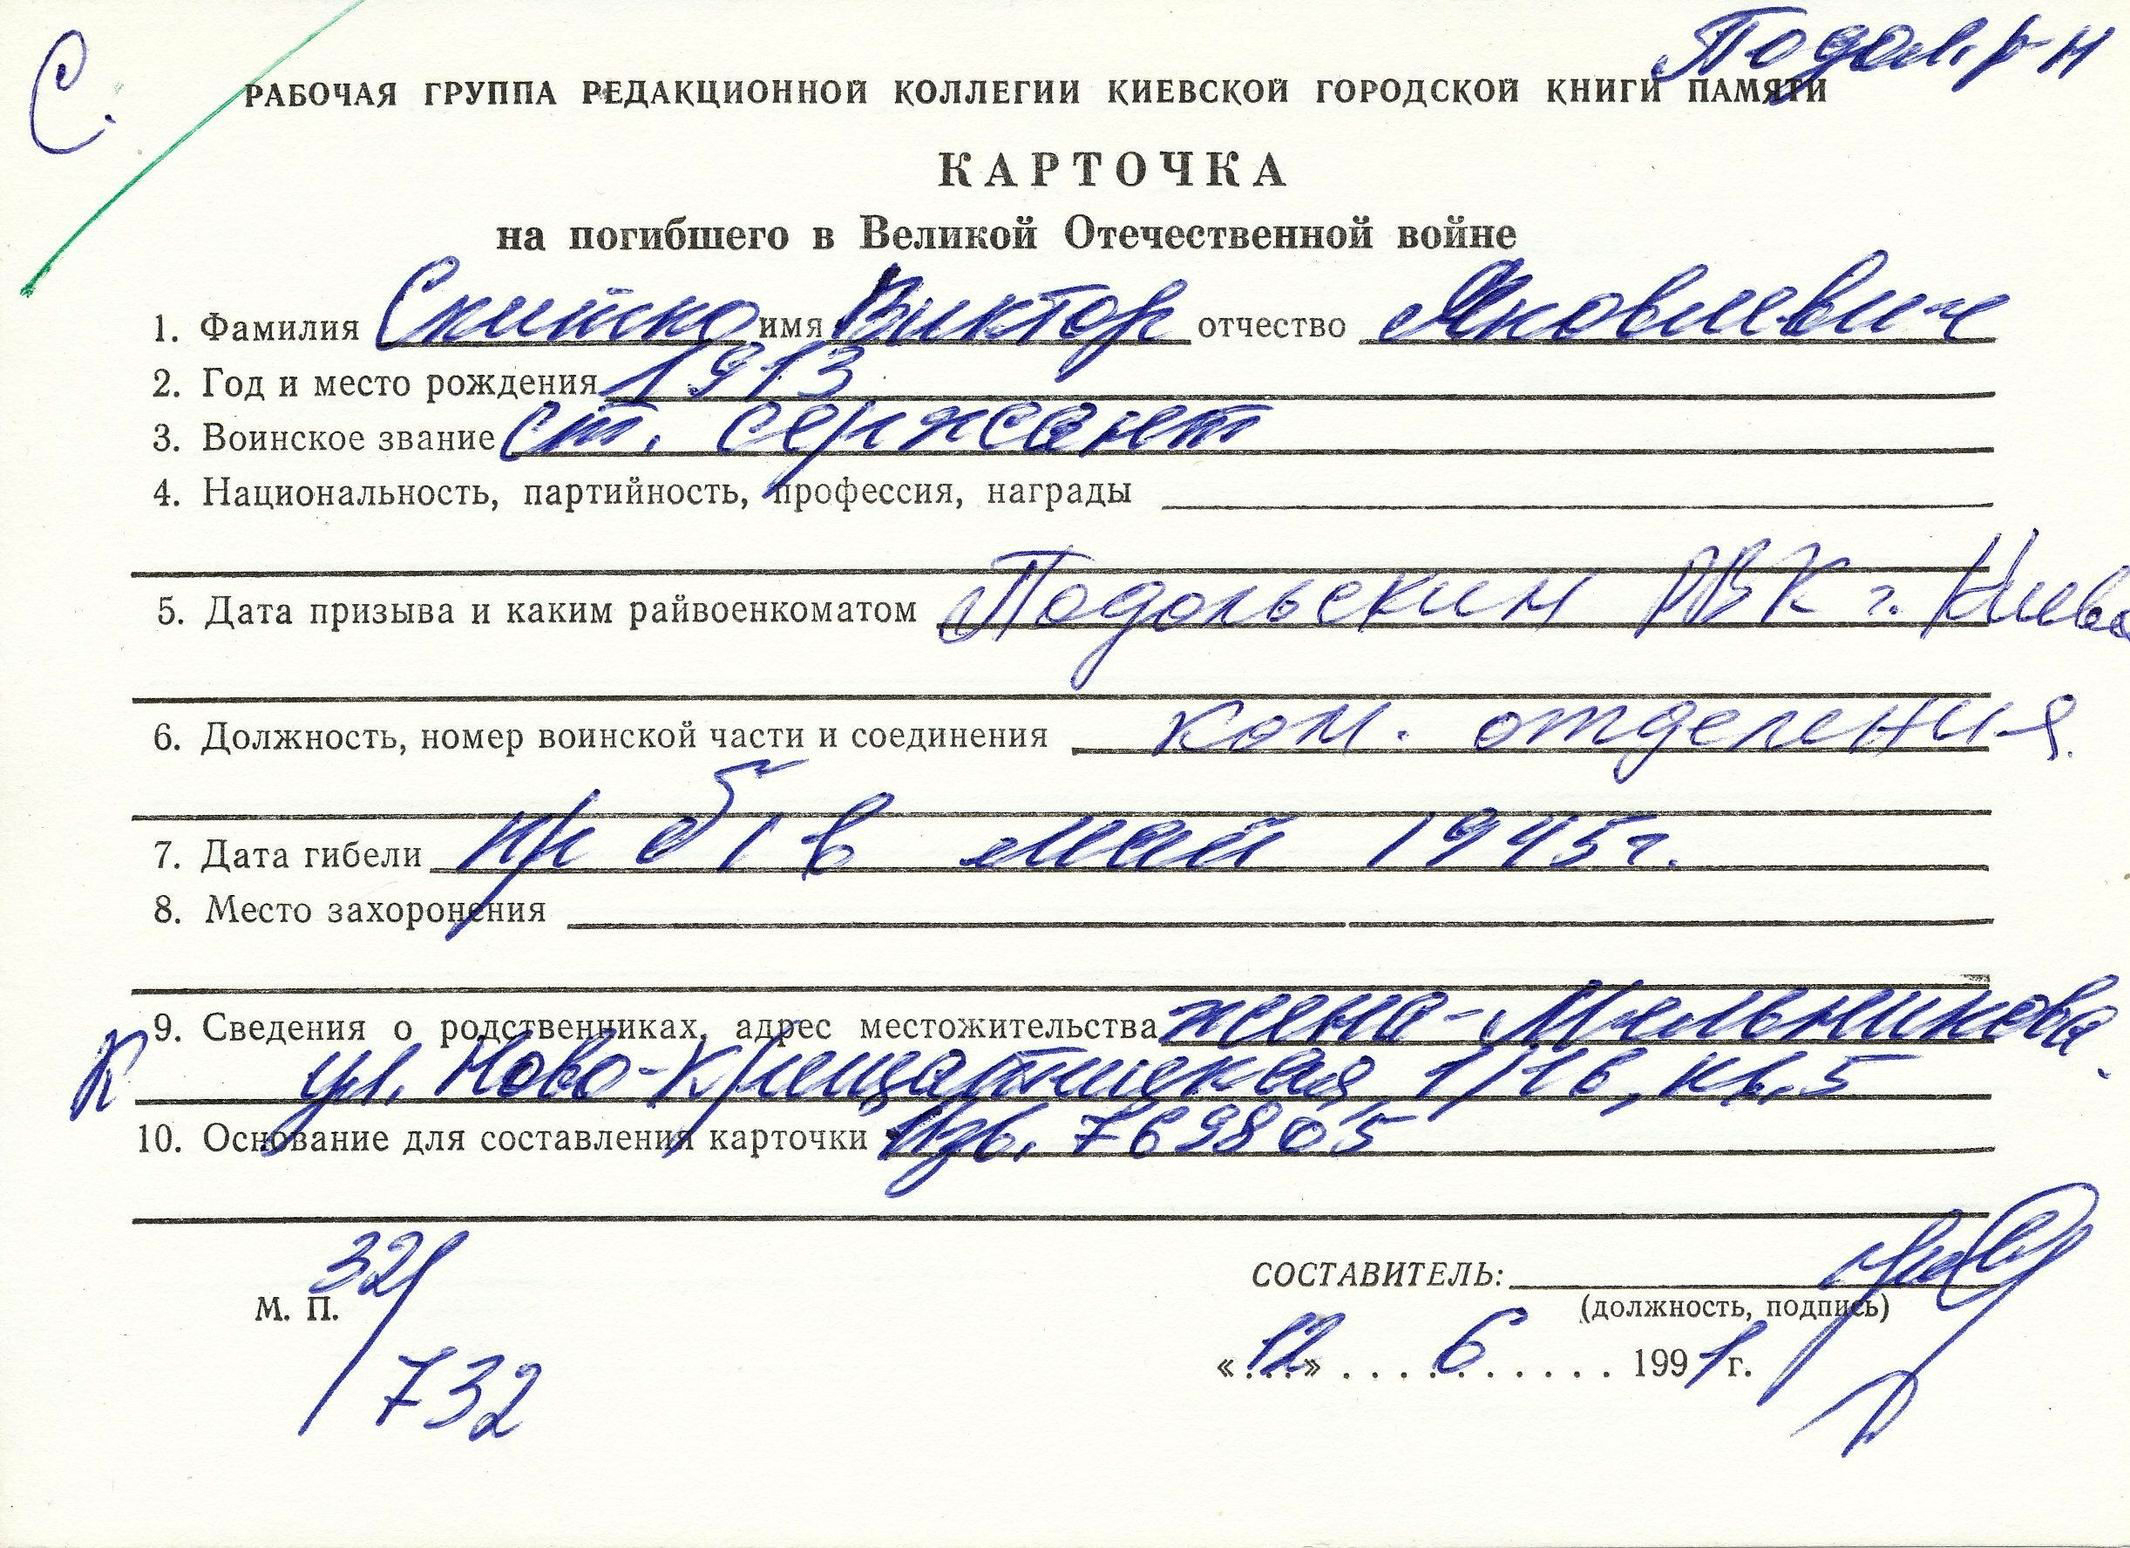 С. Подол. р-н
РАБОЧАЯ ГРУППА РЕДАКЦИОННОЙ КОЛЛЕГИИ КИЕВСКОЙ ГОРОДСКОЙ КНИГИ ПАМЯТИ
КАРТОЧКА
на погибшего в Великой Отечественной войне
1. Фамилия имя Виктор отчество Яковлевич
2. Год и место рождения 1913
3. Воинское звание ст. сержант
4. Национальность, партийность, профессия, награды
5. Дата призыва и каким райвоенкоматом Подольским РВК г. Киева
6. Должность, номер воинской части и соединения ком. отделения
7. Дата гибели пр б/в май 1945г.
8. Место захоронения
9. Сведения о родственниках, адрес местожительства жена - Мельникова
К ул. 1/16, кв. 5
10. Основание для составления карточки Изв. 769805
321
М. П. СОСТАВИТЕЛЬ:
(должность, подпись)
732 «12» 6 1991 г.